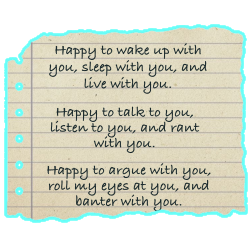 Happy to wake up with
you, sleep with you, and
live with you.
Happy to talk to you,
listen to you, and rant
with you.
Happy to argue with you,
roll my eyes at you, and
banter with you.